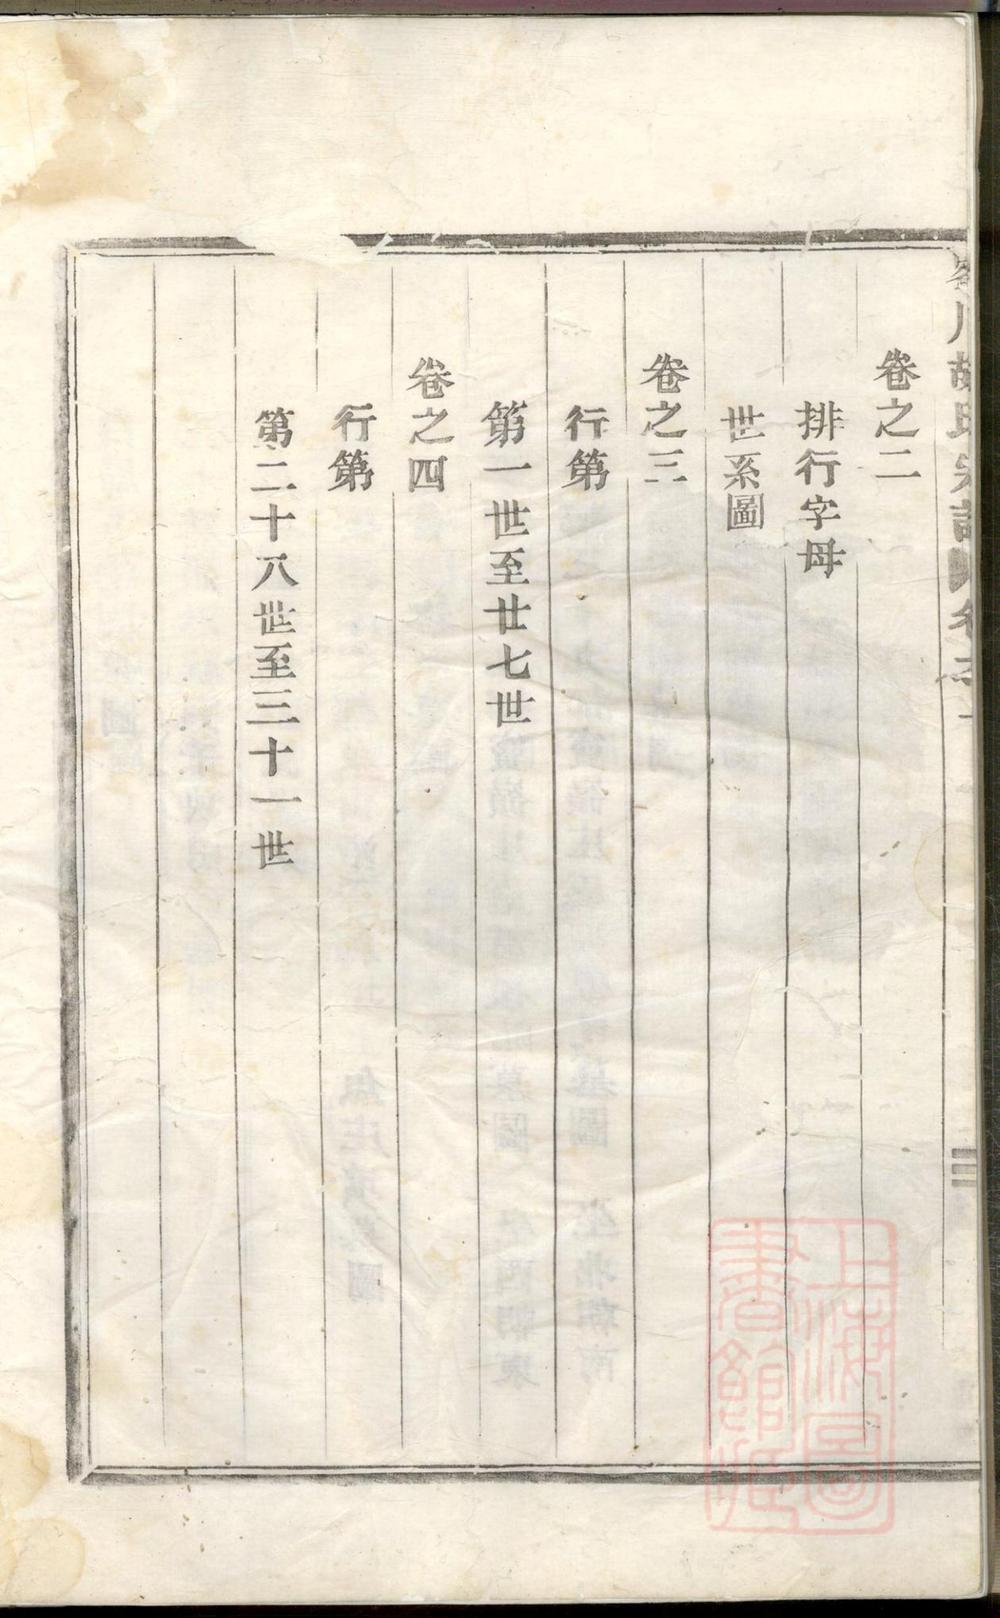 川胡氏宗譜
卷之二
排行字母
世系圖
卷之三
行第
第一世至廿七世
卷之四
行第
第二十八世至三十一世
上海圖
書館藏